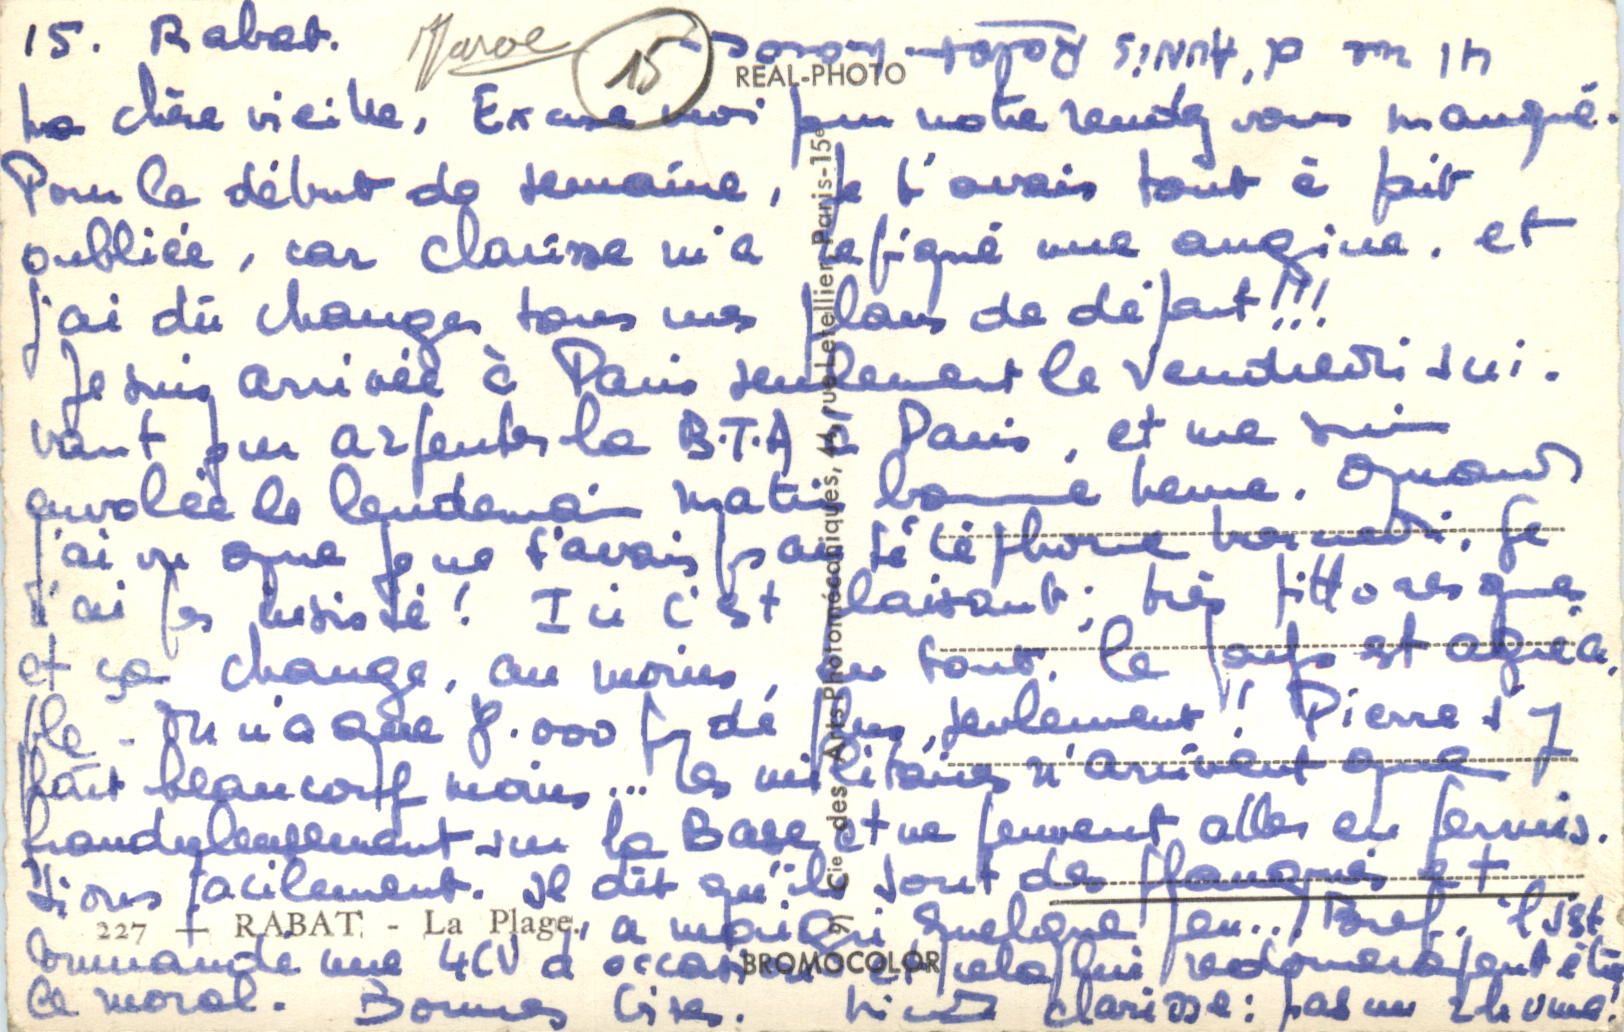 15. Rabat.
Maroc
15
41 rue d'Aunis Rabat - Maroc
REAL-PHOTO
Ma chère vieille, Excuse moi pour notre rendez vous manqué.
Pour le début de semaine, je t'avais tout à fait
oubliée, car Clarisse m'a refiqué une angine. et
j'ai dû changer tous mes plans de départ!!!
Je suis arrivée à Paris seulement le vendredi sui.
vant pour arpenter la B.T.A à Paris, et me suis
envolée le lendemain matin bonne heure. Quand
j'ai vu que je ne t'avais pas au téléphone vendredi, je
n'ai pas insisté! Ici c'est plaisant, très pittoresque
et ça change, au moins, en tout. le pays est agréa.
ble - On n'a que 8.000 f de plus seulement! Pierre s'y
plait beaucoup moins... les militaires n'arrivent que
frauduleusement sur la Base et ne peuvent aller en permis.
sions facilement. Il dit qu'ils sont des planqués et
a maigri quelque peu... Bref, il s'est
commandé une 4CV d'occasion et cela lui redonnera peut être
le moral. Bonnes bises. Clarisse: pas un rhume!
227 — RABAT - La Plage.
BROMOCOLOR
Cie des Arts Photomécaniques, 44, rue Letellier, Paris-15e